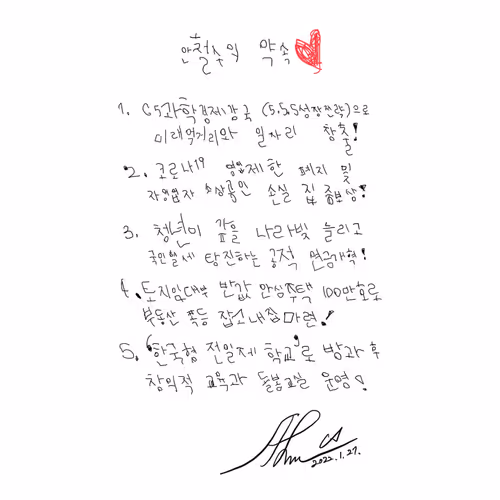 안철수의 약속
1. G5과학경제강국 (5.5.5성장전략)으로
미래먹거리와 일자리 창출!
2. 코로나19 영업제한 폐지 및
자영업자 소상공인 손실 집중보상!
3. 청년이 갚을 나라빚 늘리고
국민혈세 탕진하는 공적 연금개혁!
4. 토지임대부 반값 안심주택 100만호로
부동산 폭등 잡고 내집마련!
5. '한국형 전일제 학교'로 방과 후
창의적 교육과 돌봄교실 운영!
Ahn CS
2022.1.27.